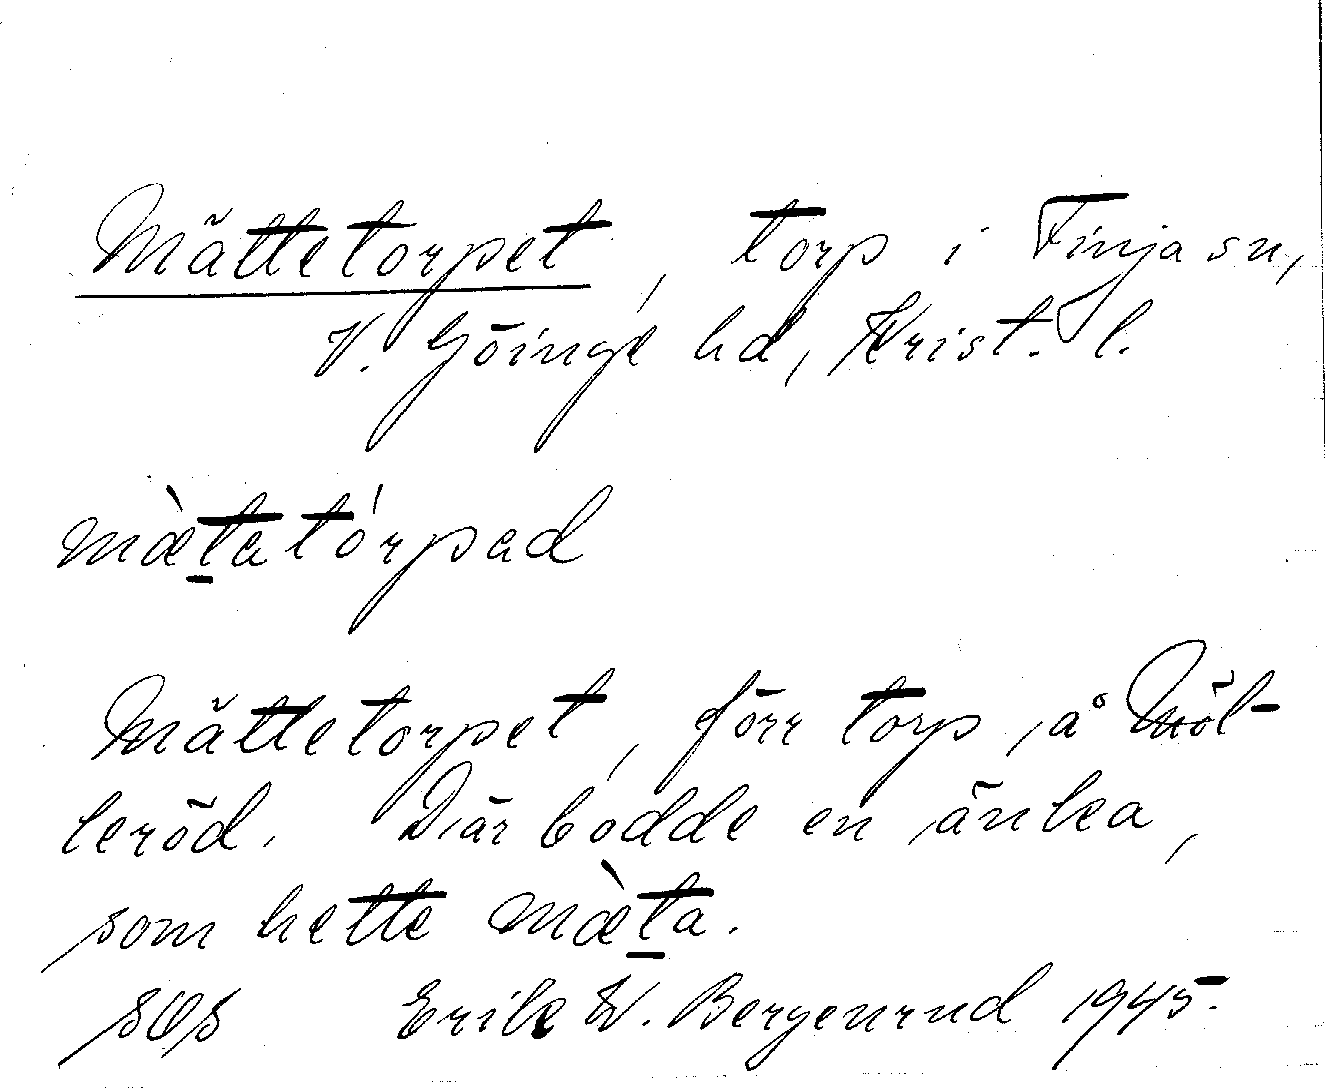 Mättetorpet, torp i Finja sn,
V. Göinge hd, Krist. l.
mæ̀ṯatórpad
Mättetorpet, förr torp på Möl-
leröd. Där bodde en änka,
som hette mæ̀ṯa.
Erik W. Bergenrud 1945.